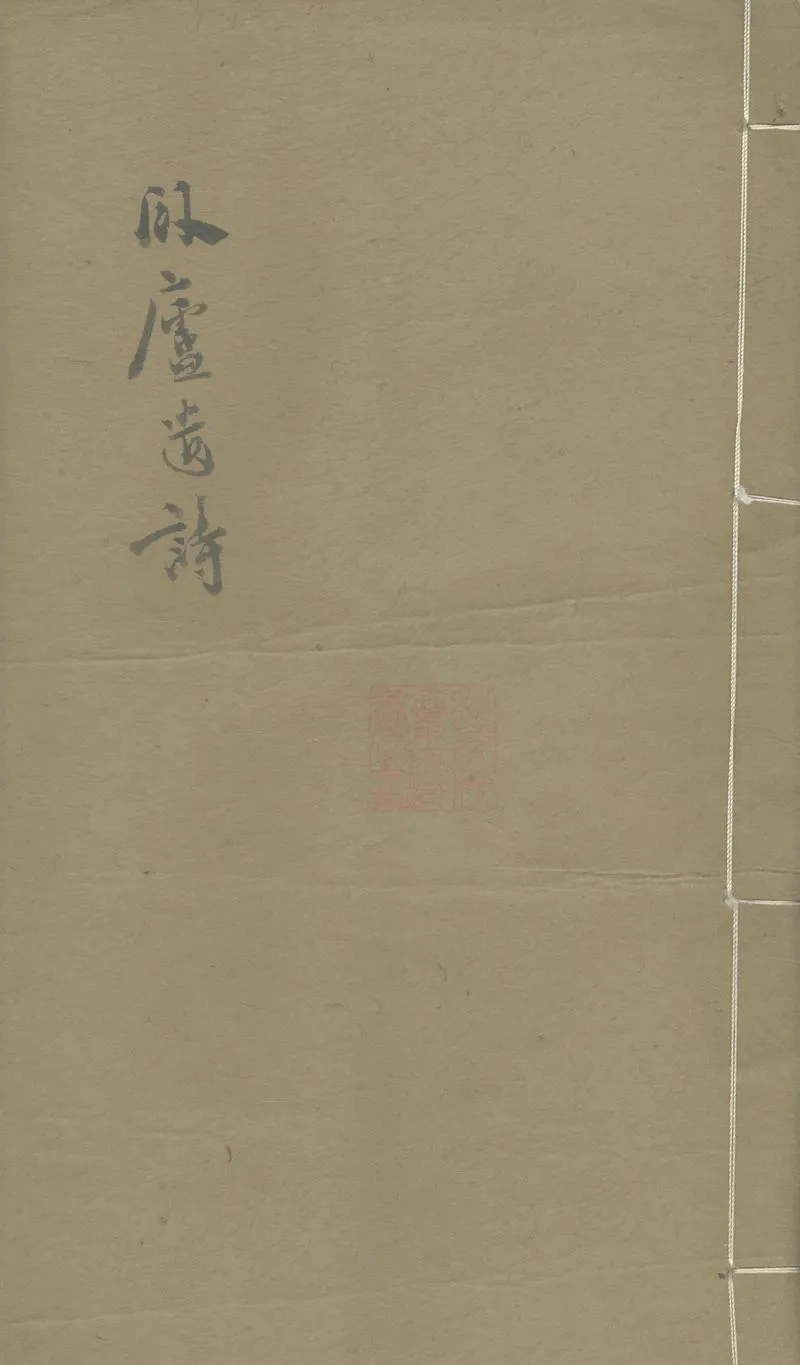 臥廬遺詩